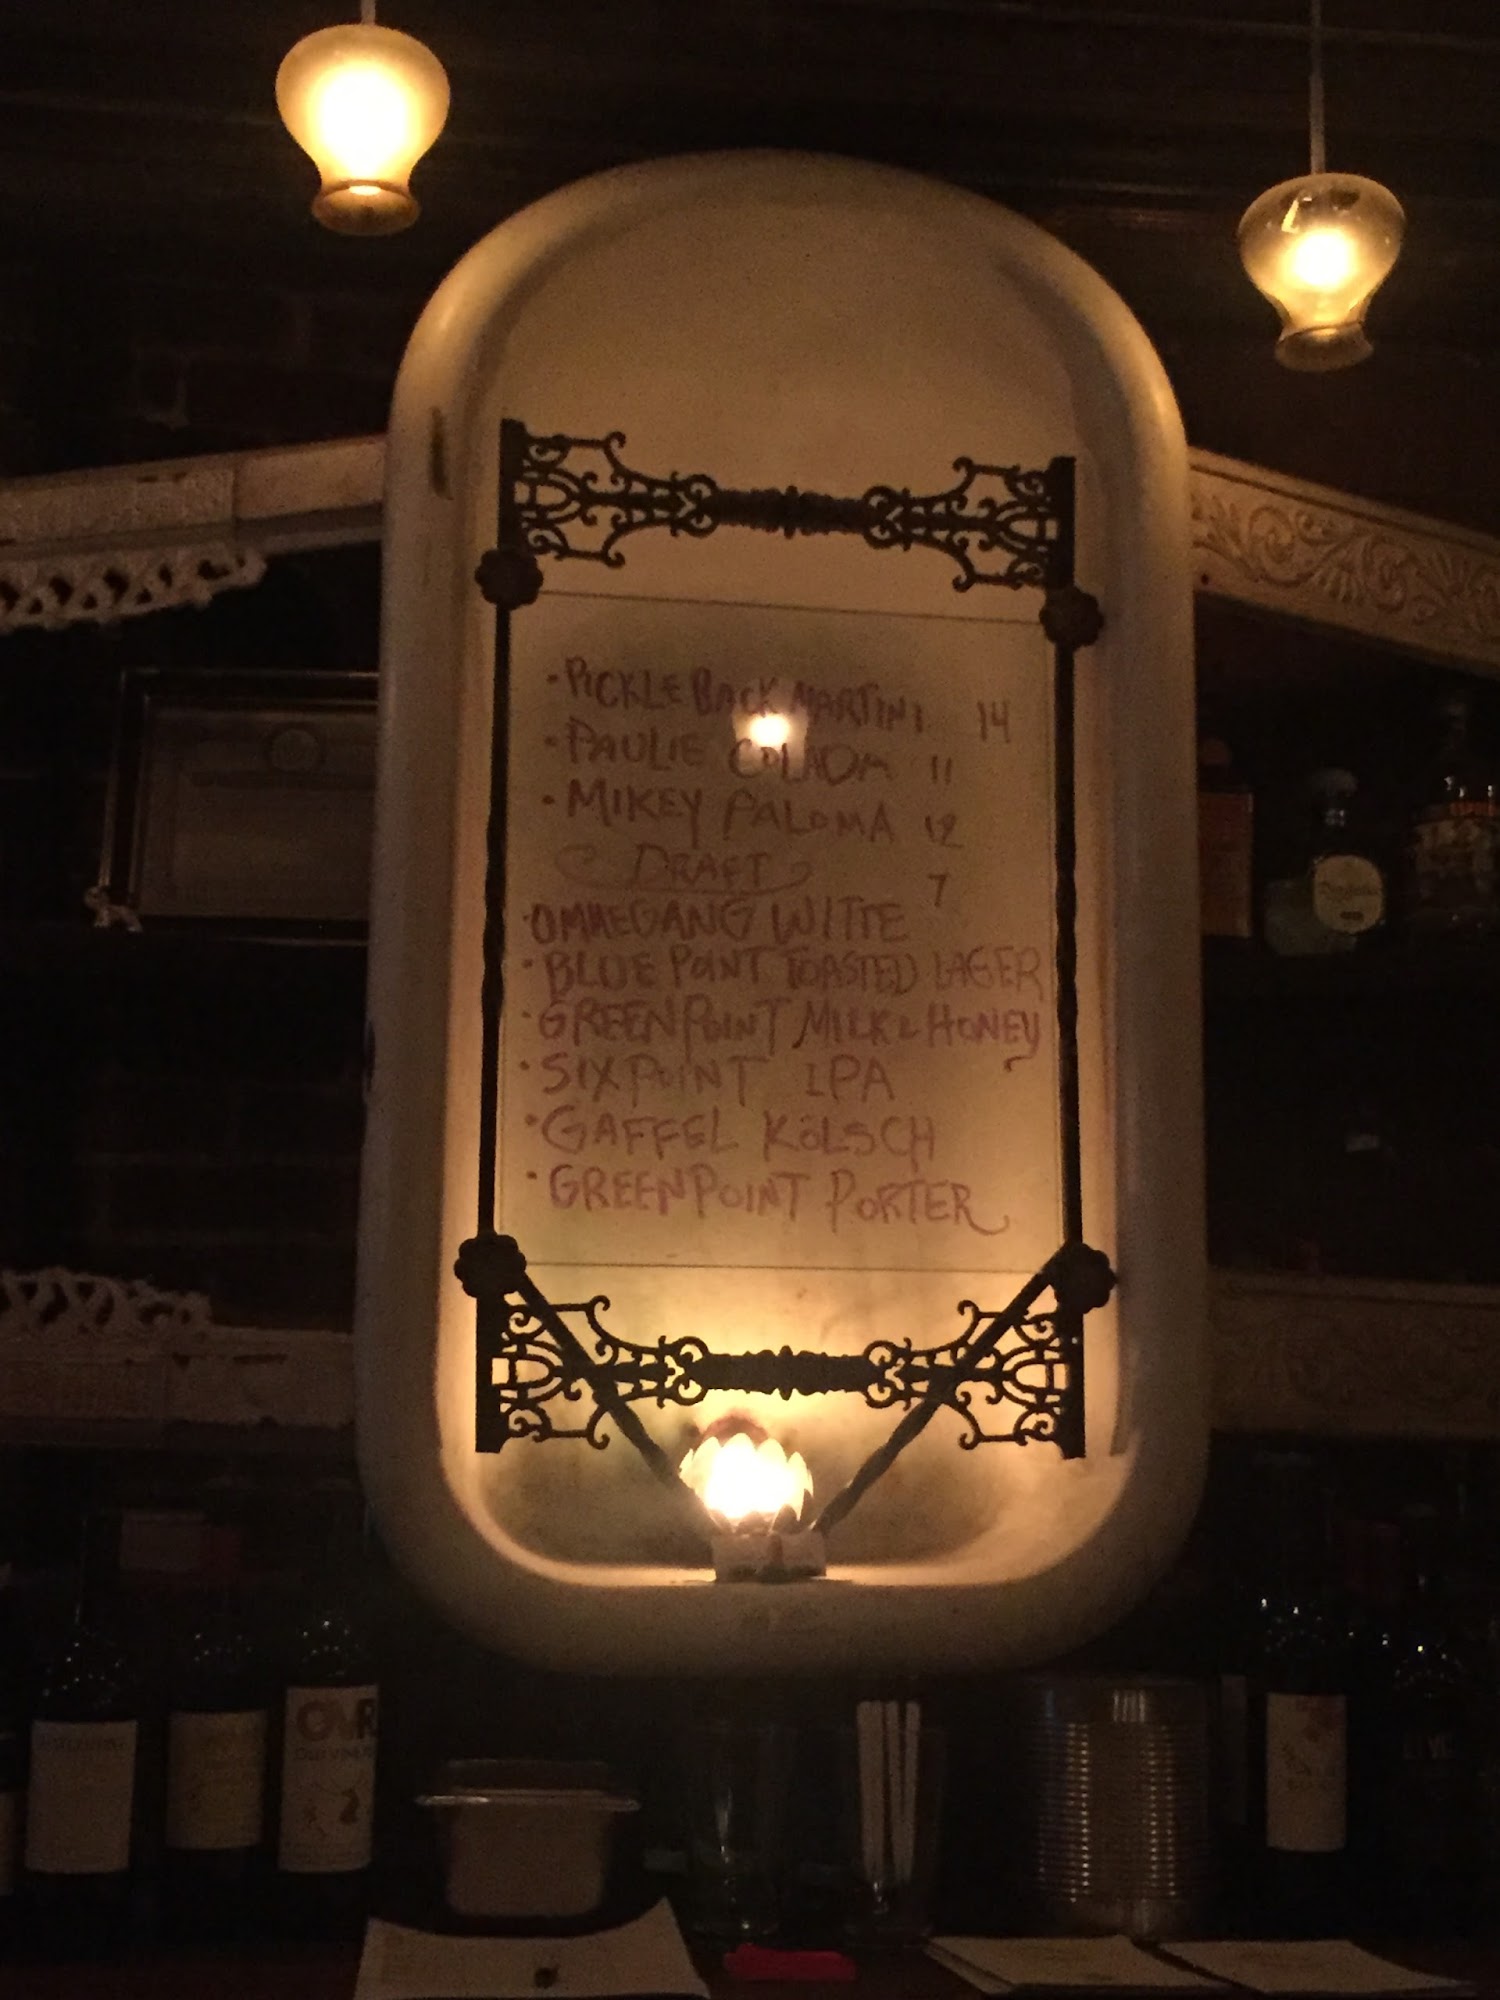 • PICKLE BACK MARTINI 14
• PAULIE COLADA 11
• MIKEY PALOMA 12
DRAFT 7
• OMMEGANG WITTE
• BLUE POINT TOASTED LAGER
• GREENPOINT MILK & HONEY
• SIXPOINT IPA
• GAFFEL KÖLSCH
• GREENPOINT PORTER
OVR